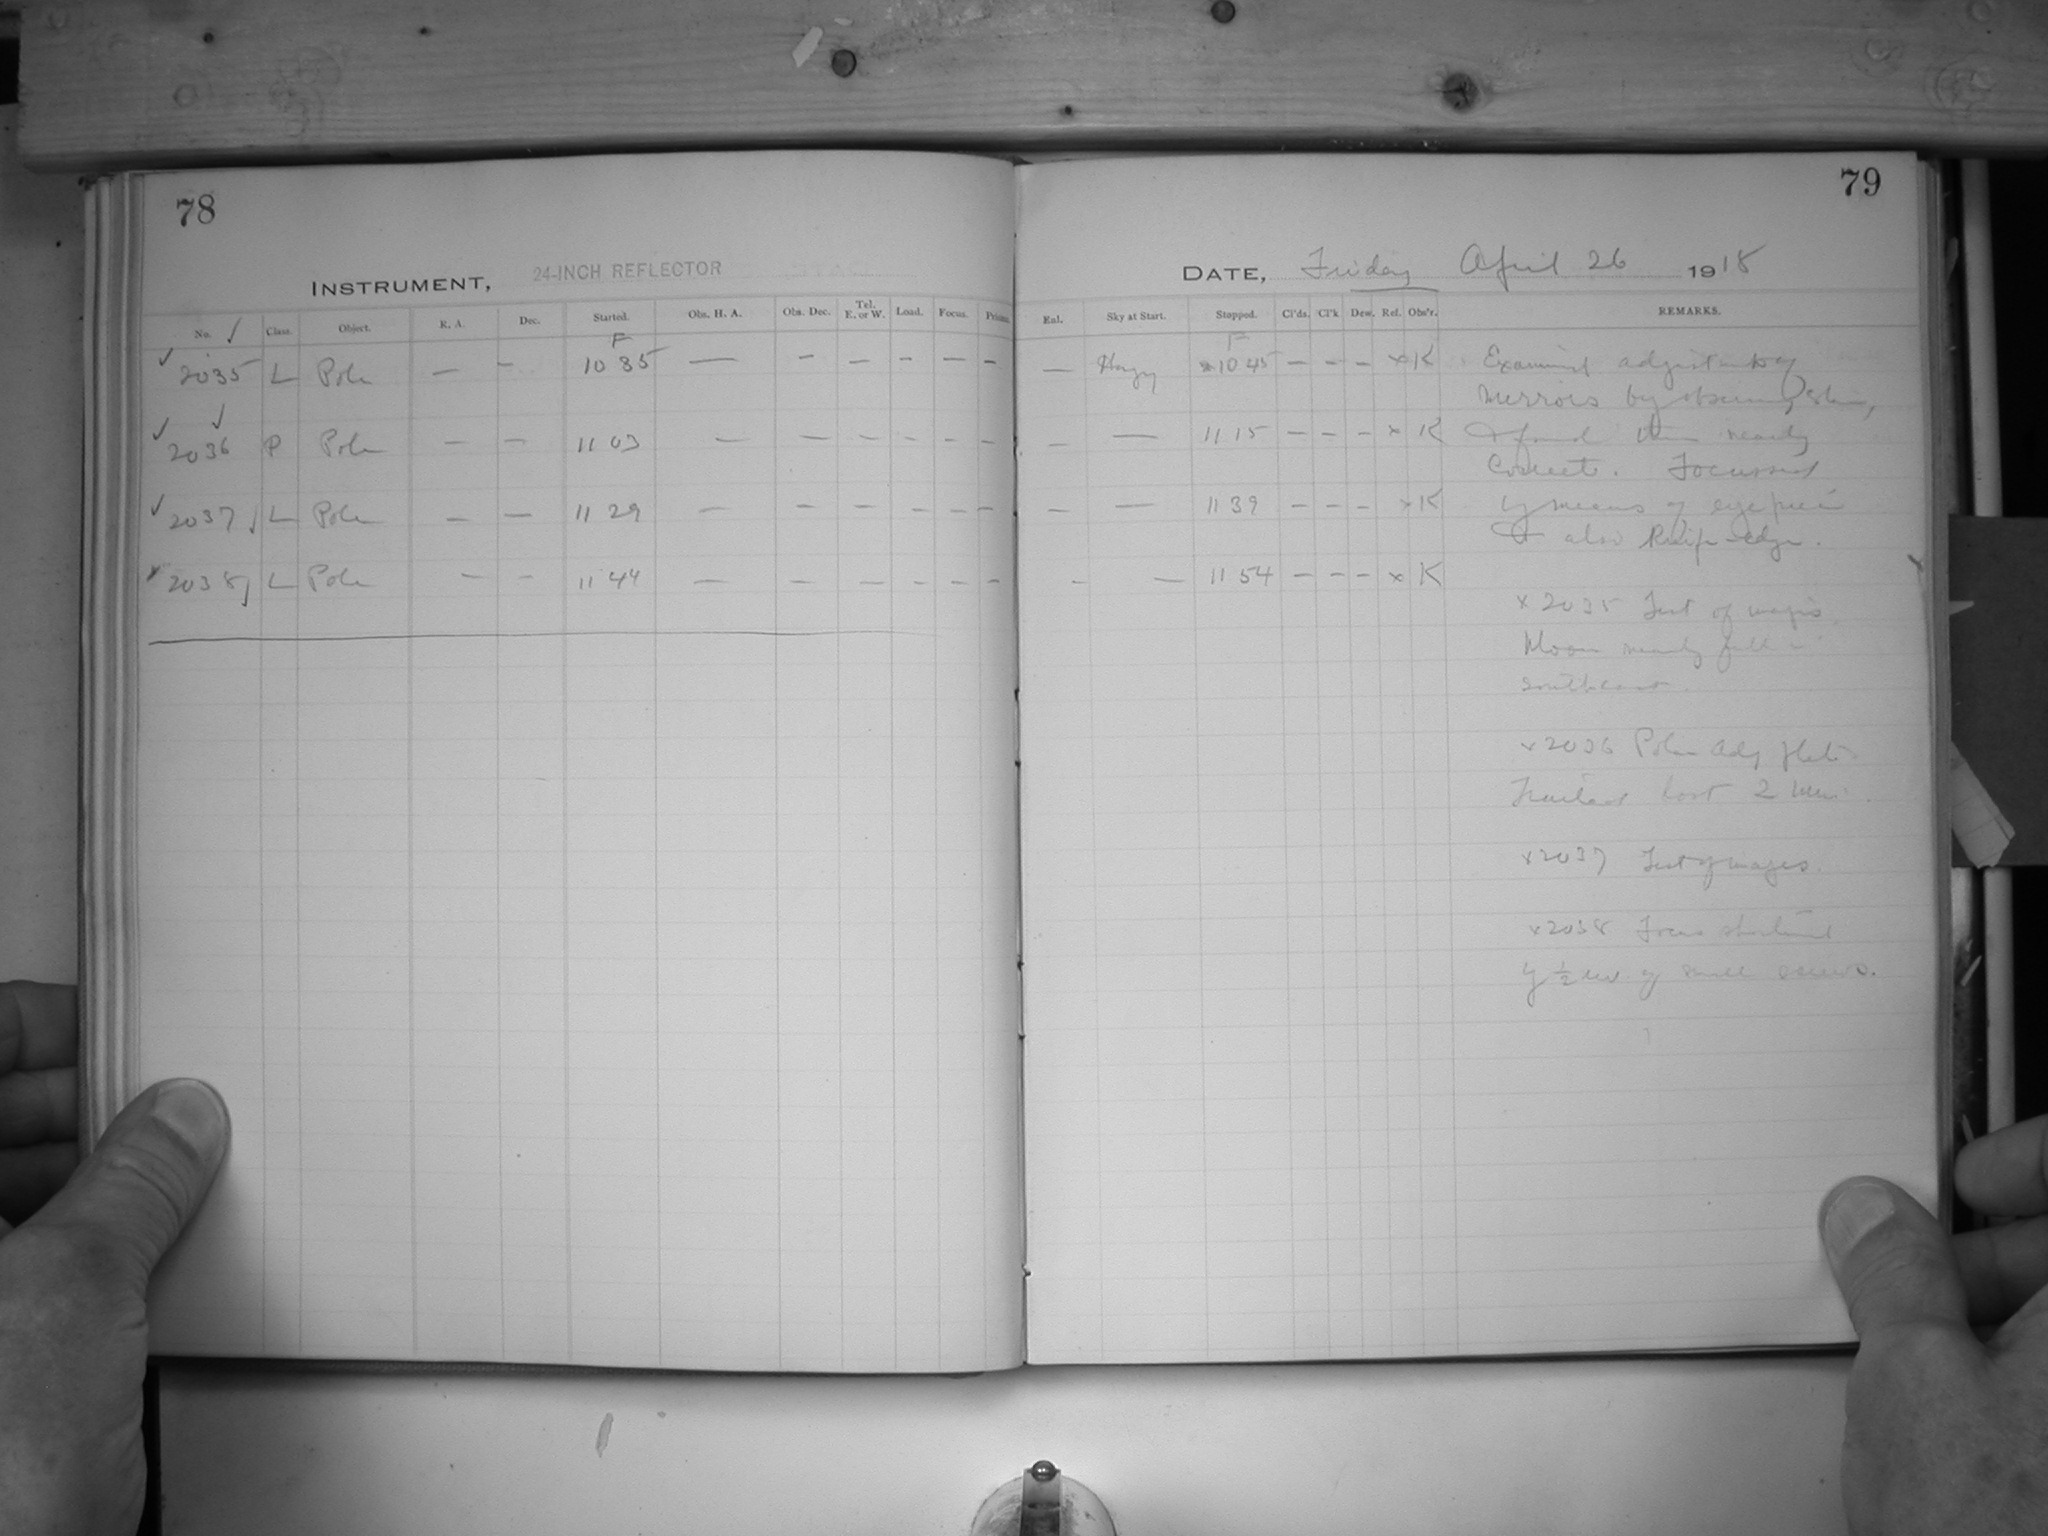 78
INSTRUMENT, 24-INCH REFLECTOR
No. Class. Object. R. A. Dec. Started. Obs. H. A. Obs. Dec. Tel. E. or W. Load. Focus. Prisms.
F
✓ 2035 L Pole — — 10 35 — — — — — —
✓ 2036 P Pole — — 11 03 — — — — — —
✓ 2037 L Pole — — 11 29 — — — — — —
2038 L Pole — — 11 44 — — — — — —
79
DATE, Friday April 26 1918
Ext. Sky at Start. Stopped. Cl'ds. Cl'k Dew. Ref. Obs'r. REMARKS.
F
— Hazy 10 45 — — — × K Examined adjustment of
mirrors by observing star,
— — 11 15 — — — × K & found them nearly
correct. Focussed
— — 11 39 — — — × K by means of eyepiece
& also Knife-edge.
— — 11 54 — — — × K
× 2035 Test of images
Moon nearly full in
southeast.
× 2036 Polar Adj plate
Trailed last 2 min.
× 2037 Test of images.
× 2038 Focus
by ½ rev of small screw.